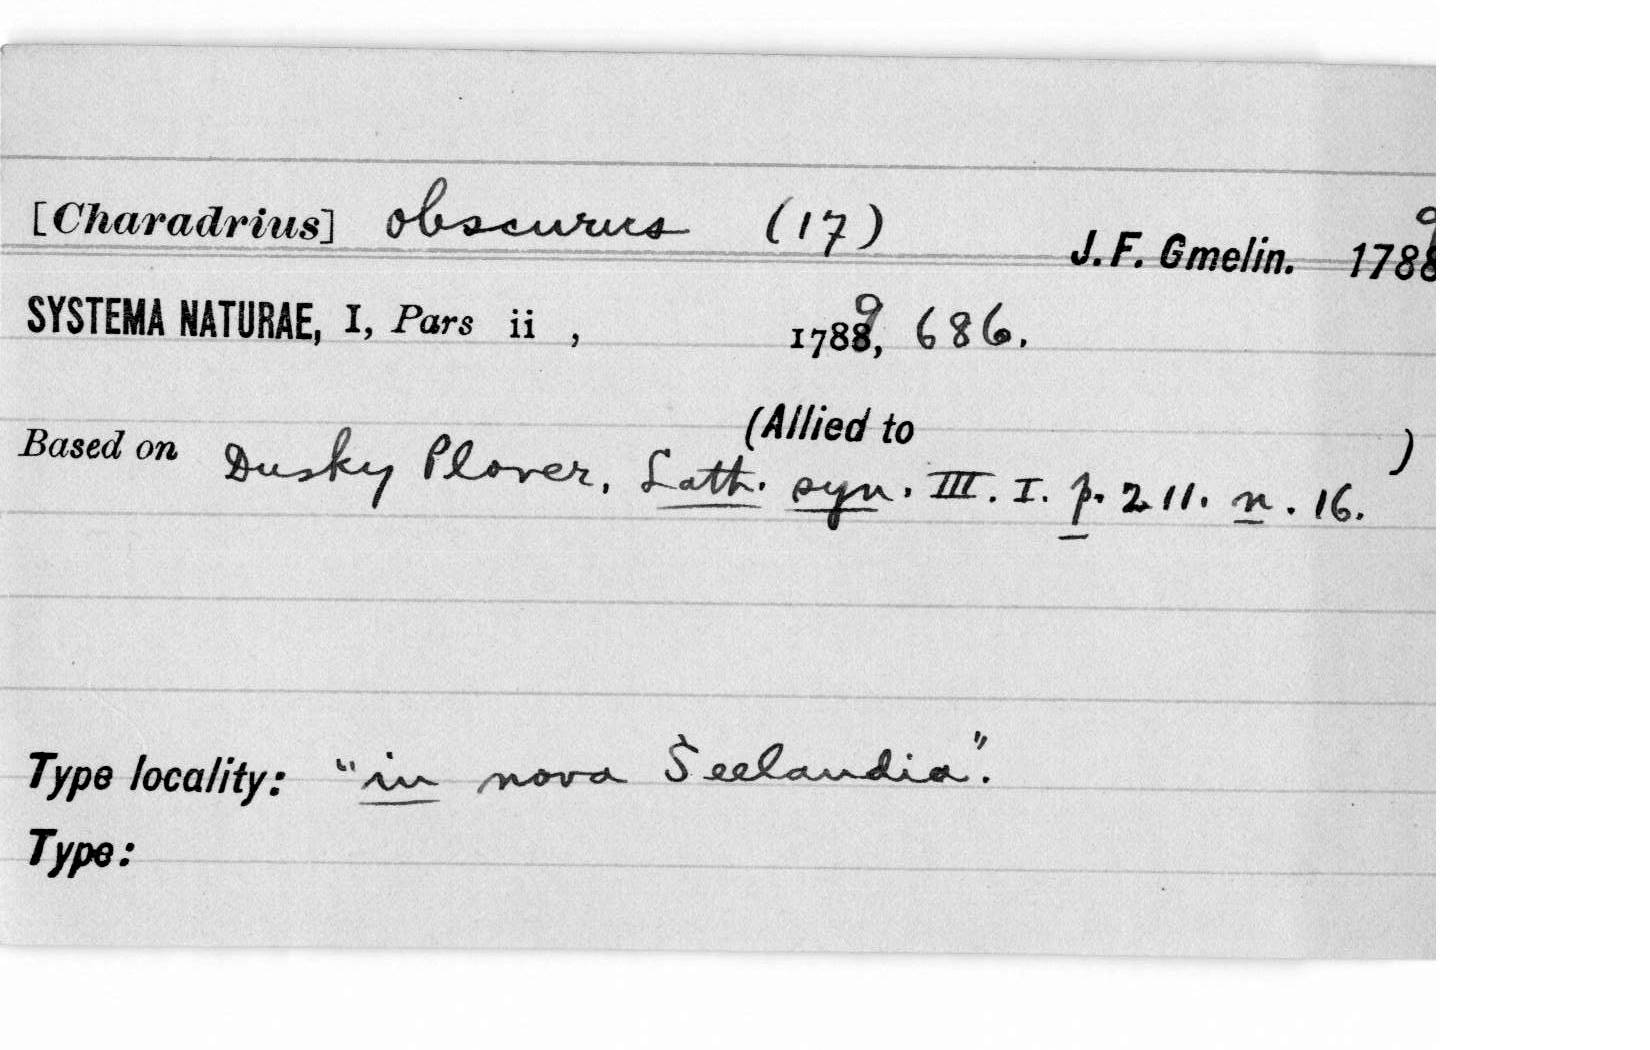 [Charadrius] obscurus (17) J. F. Gmelin. 1789
SYSTEMA NATURAE, I, Pars ii , 1789, 686.
(Allied to )
Based on Dusky Plover, Lath. syn. III. I. p. 211. n. 16.
Type locality: "in nova Seelandia".
Type: